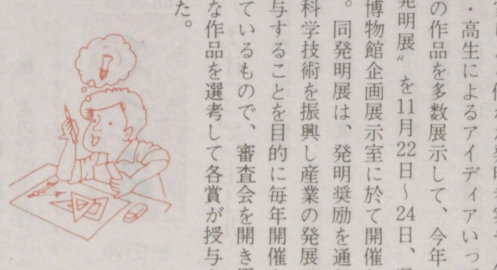 ・高生によるアイディアいっ
の作品を多数展示して、今年
発明展〟を11月22日〜24日、
博物館企画展示室に於て開催
。同発明展は、発明奨励を通
科学技術を振興し産業の発展
与することを目的に毎年開催
ているもので、審査会を開き
な作品を選考して各賞が授与
た。